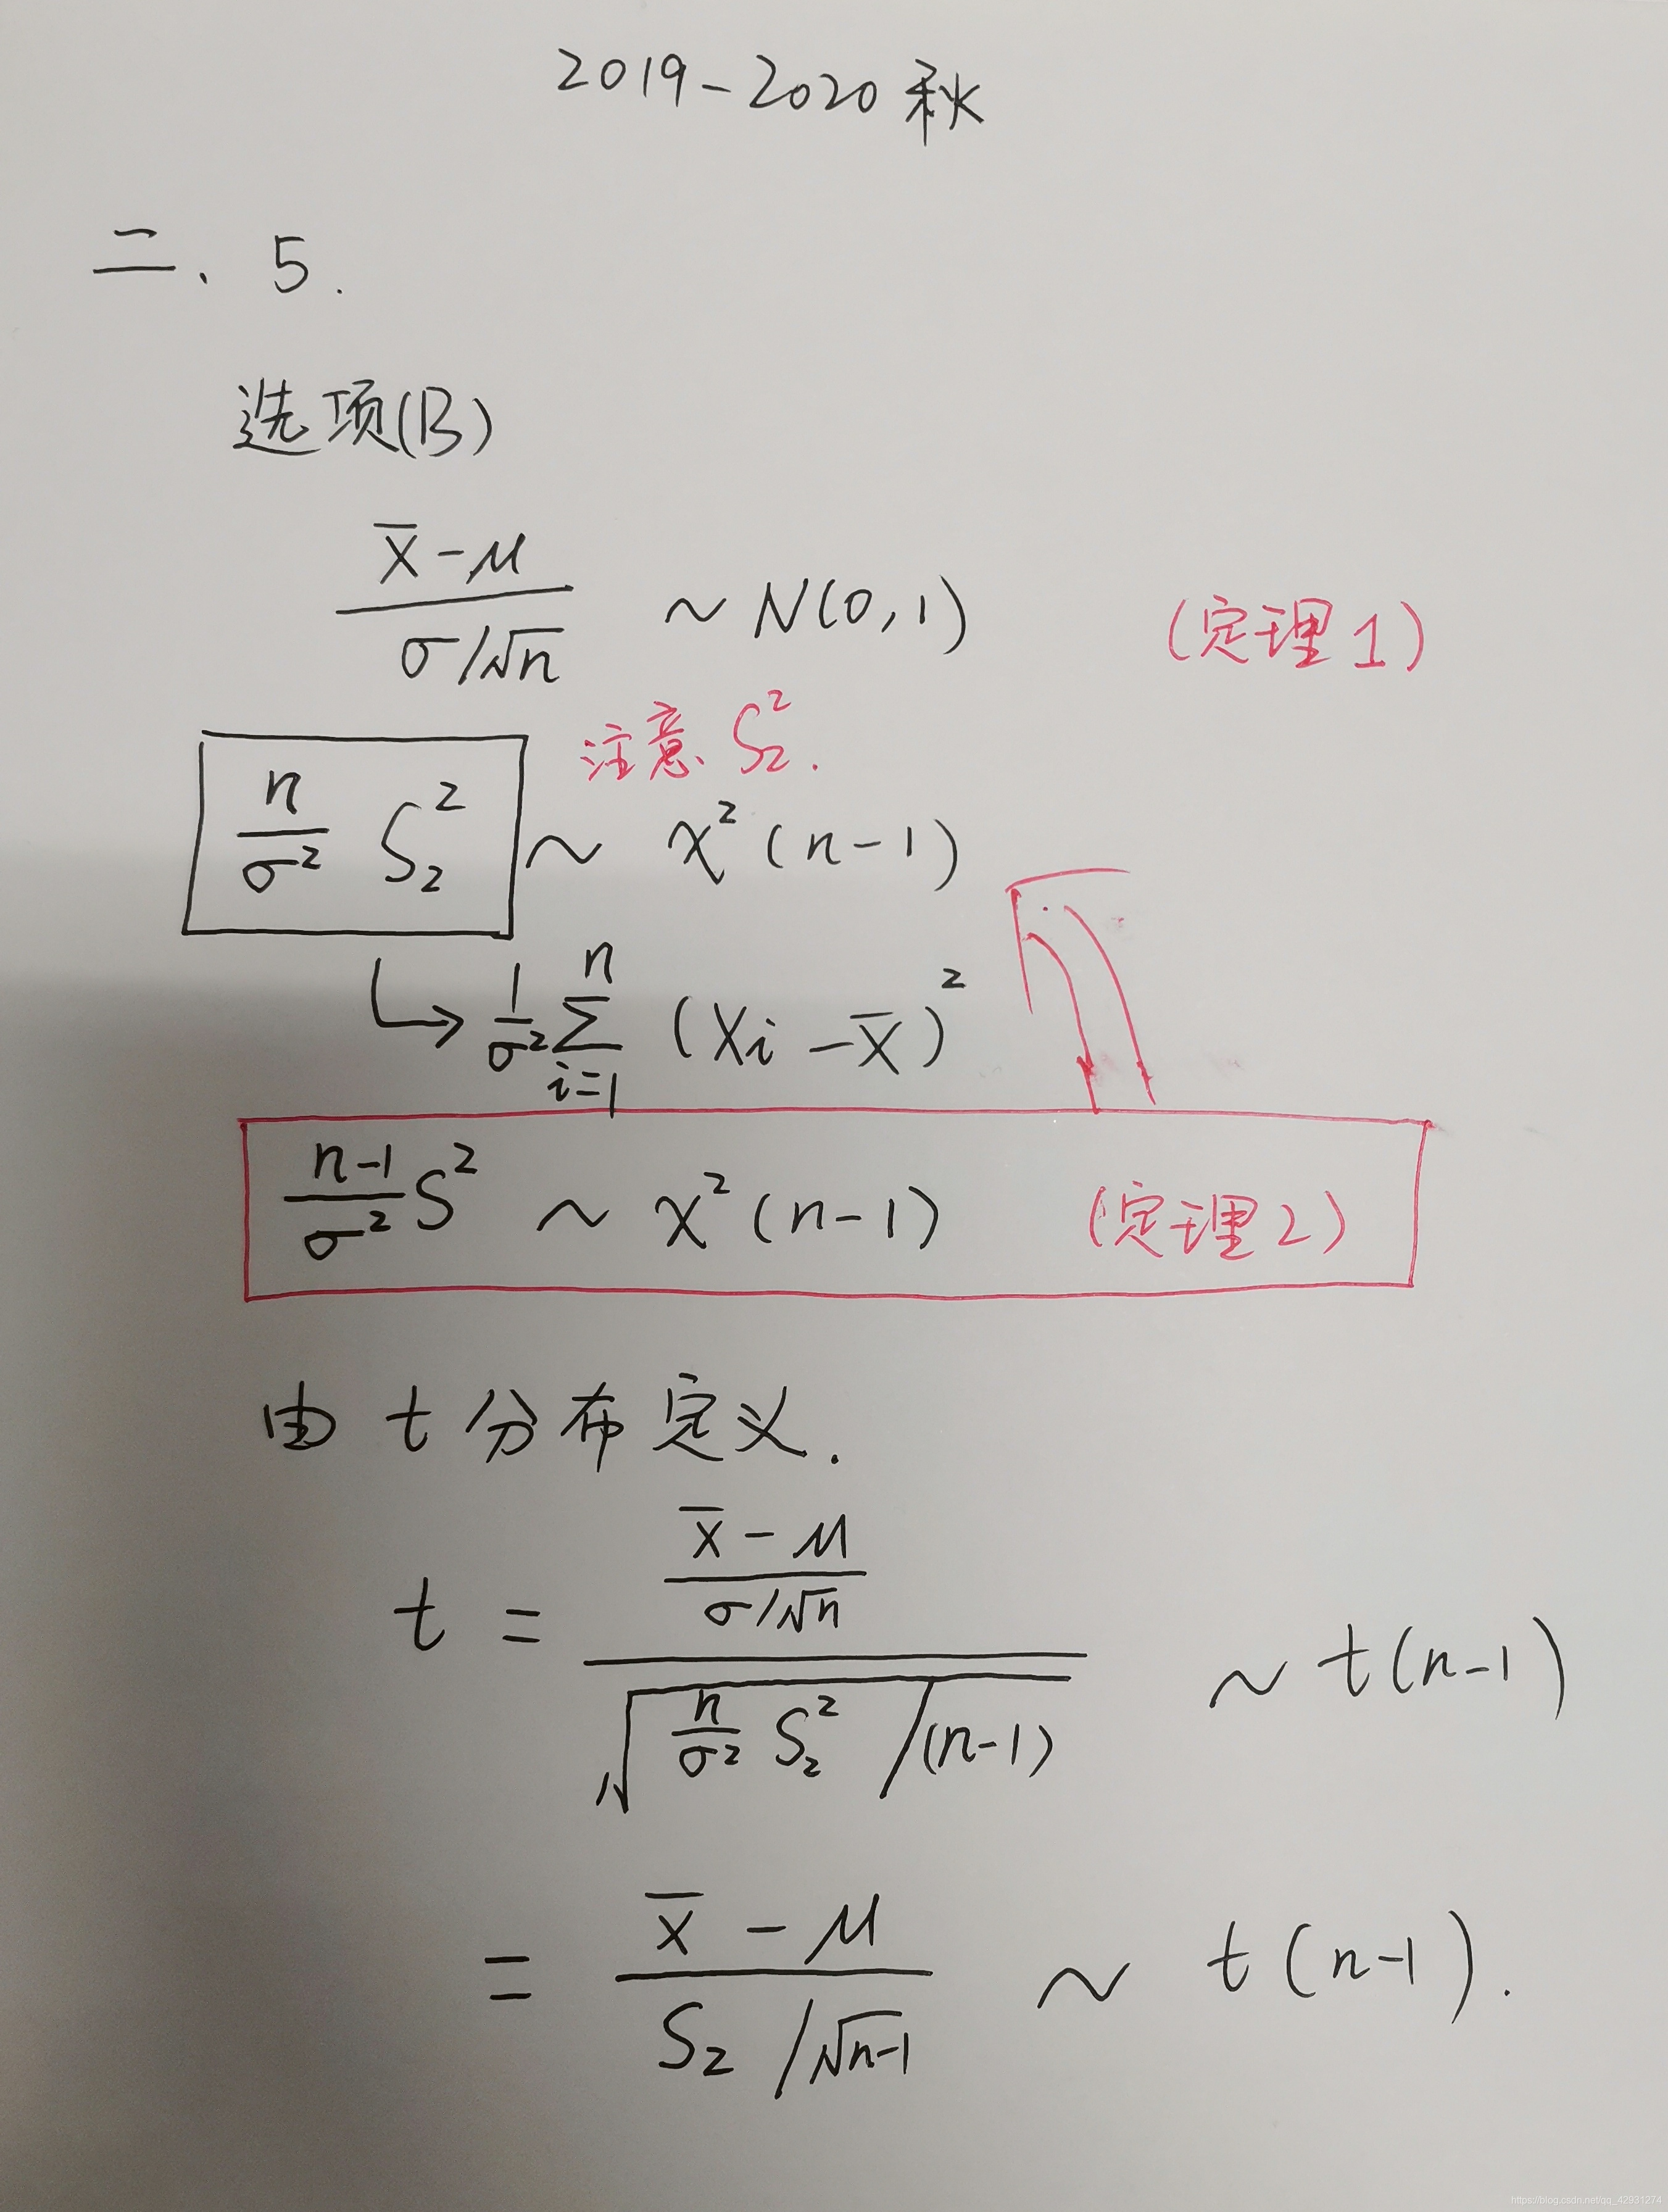 2019-2020 秋
二、5.
选项(B)
(x̄-μ)/(σ/√n) ~ N(0,1) (定理1)
注意 S₂².
n/σ² S₂² ~ χ²(n-1)
↳ 1/σ² ∑_{i=1}^{n} (Xi-x̄)²
(n-1)/σ² S² ~ χ²(n-1) (定理2)
由 t 分布定义.
t = ((x̄-μ)/(σ/√n)) / √(n/σ² S₂² /(n-1)) ~ t(n-1)
= (x̄-μ)/(S₂/√(n-1)) ~ t(n-1).
https://blog.csdn.net/qq_42931274